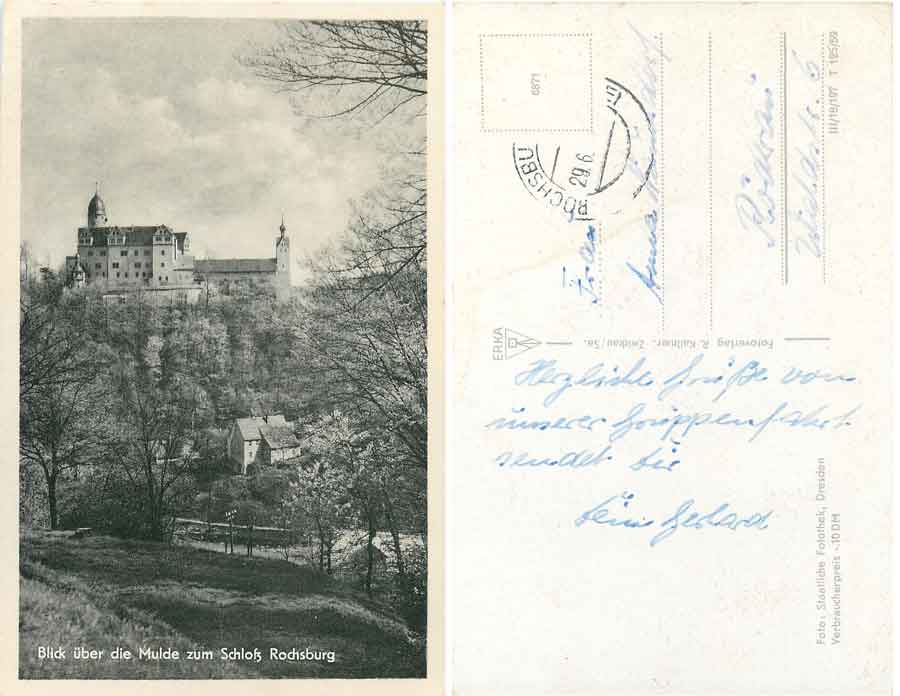 Blick über die Mulde zum Schloß Rochsburg
6871
ROCHSBU
29.6.
Frau
Anna
Rödlitz
III/18/197 T 125/59
ERKA
Fotoverlag R. Kallmer, Zwickau/Sa.
Herzliche Grüße von
unserer Gruppenfahrt
sendet Dir
Dein Gerhard
Foto: Staatliche Fotothek, Dresden
Verbraucherpreis -.10 DM